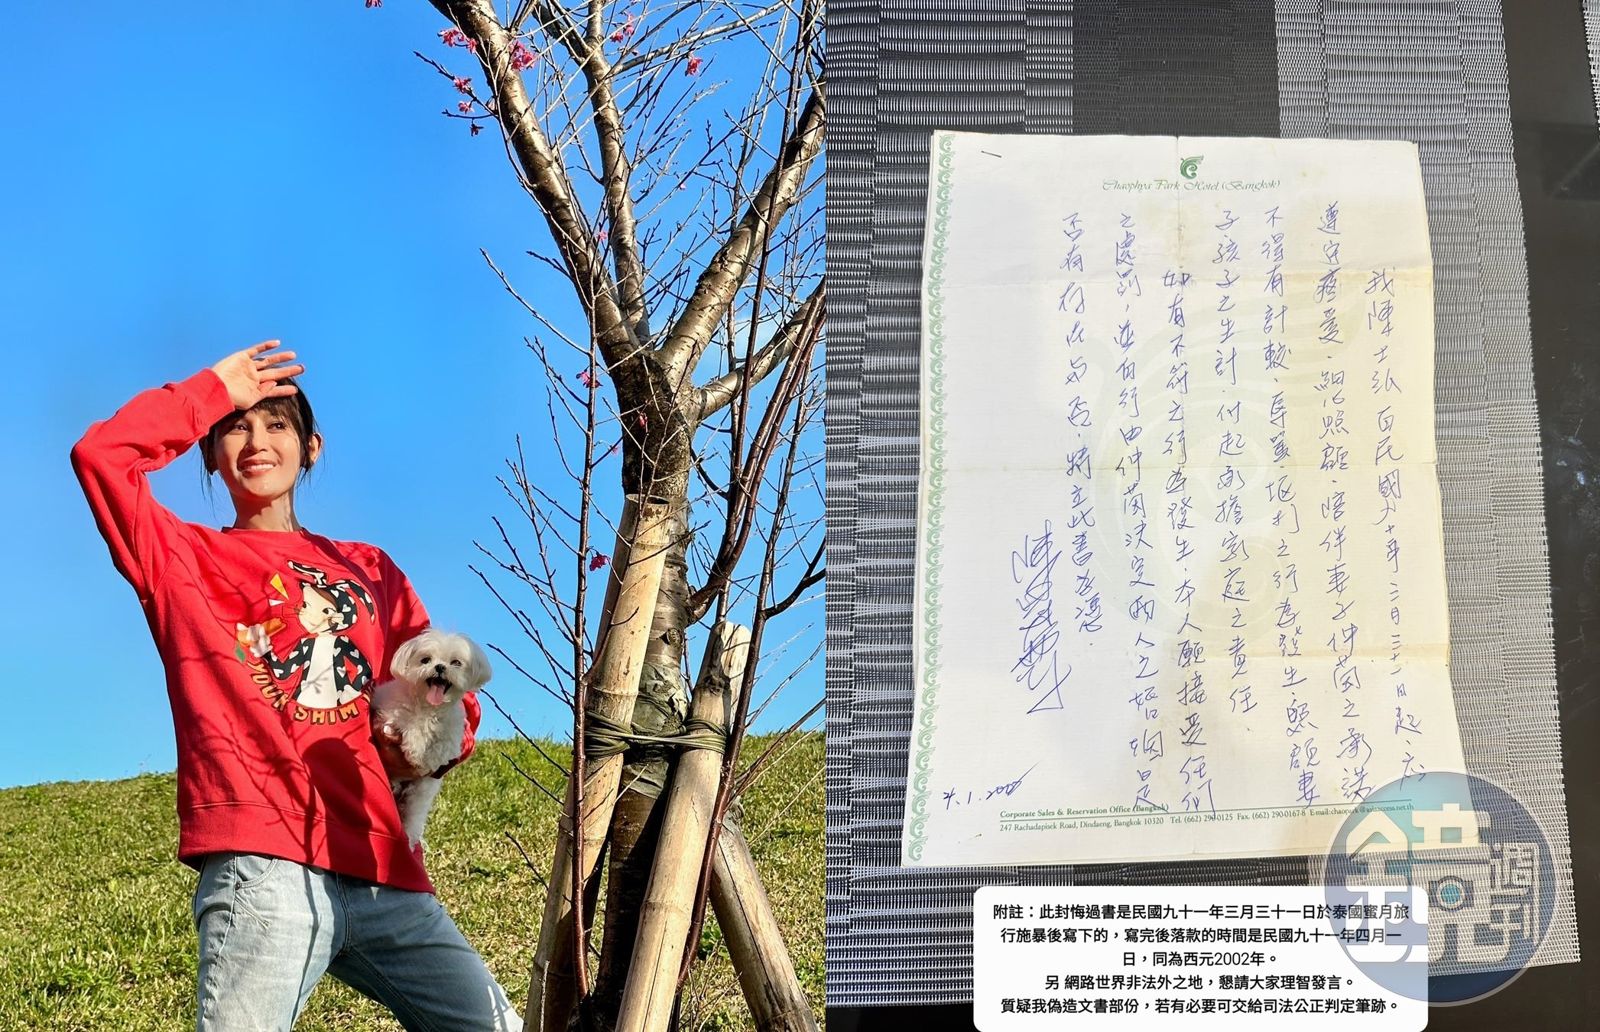 YOUR SHIM
Chaophya Park Hotel (Bangkok)
我陳士泓自民國九十年三月三十一日起，應
遵守疼愛、細心照顧、陪伴妻子仲茵之承諾
不得有計較、辱罵、毆打之行為發生，照顧妻
子孩子之生計，付起承擔家庭之責任。
如有不符之行為發生，本人願接受任何
之處罰，並自行由仲茵決定兩人之婚姻是
否有存在與否，特立此書為憑。
4.1.2002
Corporate Sales & Reservation Office (Bangkok)
247 Rachadapisek Road, Dindaeng, Bangkok 10320 Tel. (662) 290-0125 Fax. (662) 290-0167-8 Email:chaopark@asiaaccess.net.th
附註：此封悔過書是民國九十一年三月三十一日於泰國蜜月旅
行施暴後寫下的，寫完後落款的時間是民國九十一年四月一
日，同為西元2002年。
另 網路世界非法外之地，懇請大家理智發言。
質疑我偽造文書部份，若有必要可交給司法公正判定筆跡。
鏡週刊